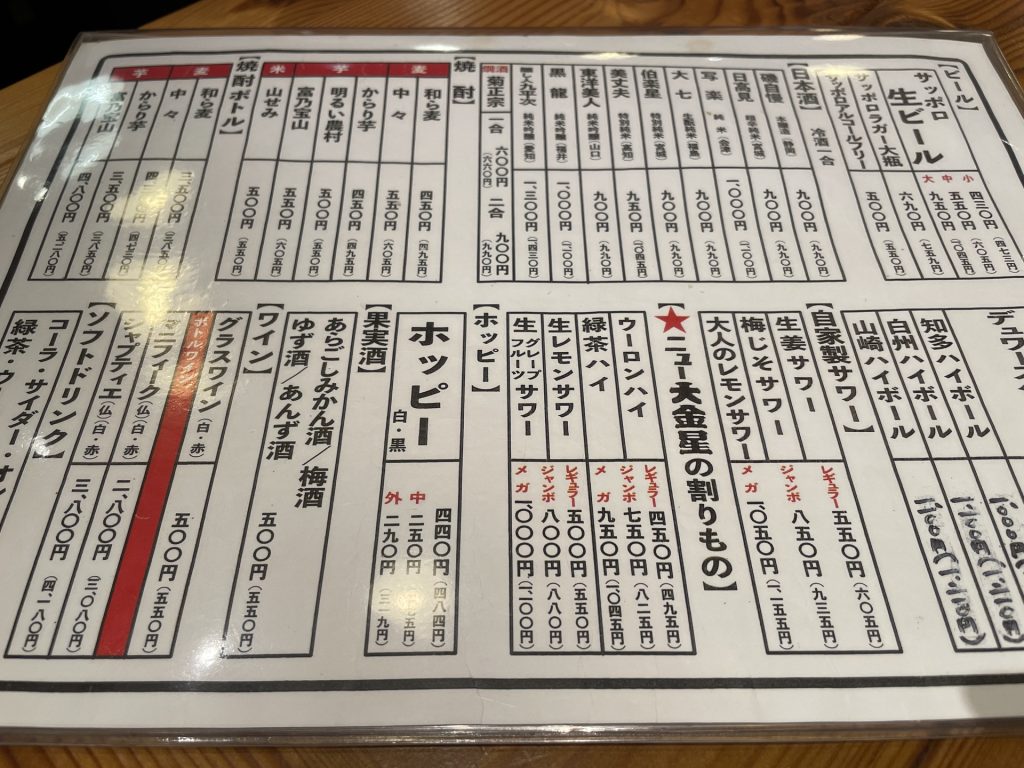 【ビール】
サッポロ
生ビール
小 四三〇円（四七三円）
中 五五〇円
大 九五〇円（一〇四五円）
サッポロラガー大瓶 六九〇円（七五九円）
サッポロアルコールフリー 五〇〇円（五五〇円）
【日本酒】冷酒一合
磯自慢 本醸造（静岡） 九〇〇円（九九〇円）
日高見 超辛純米（宮城） 九〇〇円（九九〇円）
写楽 純米（会津） 一、〇〇〇円（一一〇〇円）
大七 生酛純米（福島） 九〇〇円（九九〇円）
伯楽星 特別純米（宮城） 九五〇円（一〇四五円）
美丈夫 特別純米（高知） 九五〇円（一〇四五円）
東洋美人 純米吟醸（山口） 九〇〇円（九九〇円）
黒龍 純米吟醸（福井） 一、〇〇〇円（一一〇〇円）
醸し人九平次 純米吟醸（愛知） 一、三〇〇円（一四三〇円）
燗酒 菊正宗 一合 六〇〇円（六六〇円） 二合 九〇〇円（九九〇円）
【焼酎】
麦
和ら麦 四五〇円（四九五円）
中々 五五〇円（六〇五円）
芋
からり芋 四五〇円（四九五円）
明るい農村 五〇〇円（五五〇円）
富乃宝山 五五〇円（六〇五円）
米
山せみ 五〇〇円（五五〇円）
【焼酎ボトル】
麦
和ら麦 三、五〇〇円（三八五〇円）
中々
芋
からり芋 三、五〇〇円（三八五〇円）
富乃宝山 四、八〇〇円（五二八〇円）
デュワーズ
1000円(1,100円)
知多ハイボール
白州ハイボール
山崎ハイボール
【自家製サワー】
生姜サワー
梅じそサワー
大人のレモンサワー
レギュラー 五五〇円（六〇五円）
ジャンボ 八五〇円（九三五円）
メガ 一、〇五〇円（一一五五円）
【★ニュー大金星の割りもの】
ウーロンハイ
緑茶ハイ
レギュラー 四五〇円（四九五円）
ジャンボ 七五〇円（八二五円）
メガ 九五〇円（一〇四五円）
生レモンサワー
生グレープフルーツサワー
レギュラー 五〇〇円（五五〇円）
ジャンボ 八〇〇円（八八〇円）
メガ 一、〇〇〇円（一一〇〇円）
【ホッピー】
ホッピー 白・黒
四四〇円（四八四円）
中 二五〇円
外 二九〇円（三一九円）
【果実酒】
あらごしみかん酒／梅酒
ゆず酒／あんず酒
五〇〇円（五五〇円）
【ワイン】
グラスワイン（白・赤） 五〇〇円（五五〇円）
マニフィーク（仏）（白・赤） 二、八〇〇円（三、〇八〇円）
ジャプティエ（仏）（白・赤） 三、八〇〇円（四、一八〇円）
【ソフトドリンク】
コーラ・サイダー・オレ
緑茶・ウー